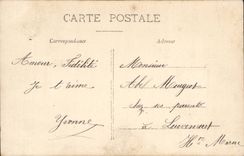 CARTE POSTALE
Correspondance
Adresse
Amour, Fidélité
Je t'aime
Yvonne
Monsieur
Abel Mugnot
chez ses parents
à Leuvencourt
Hte Marne